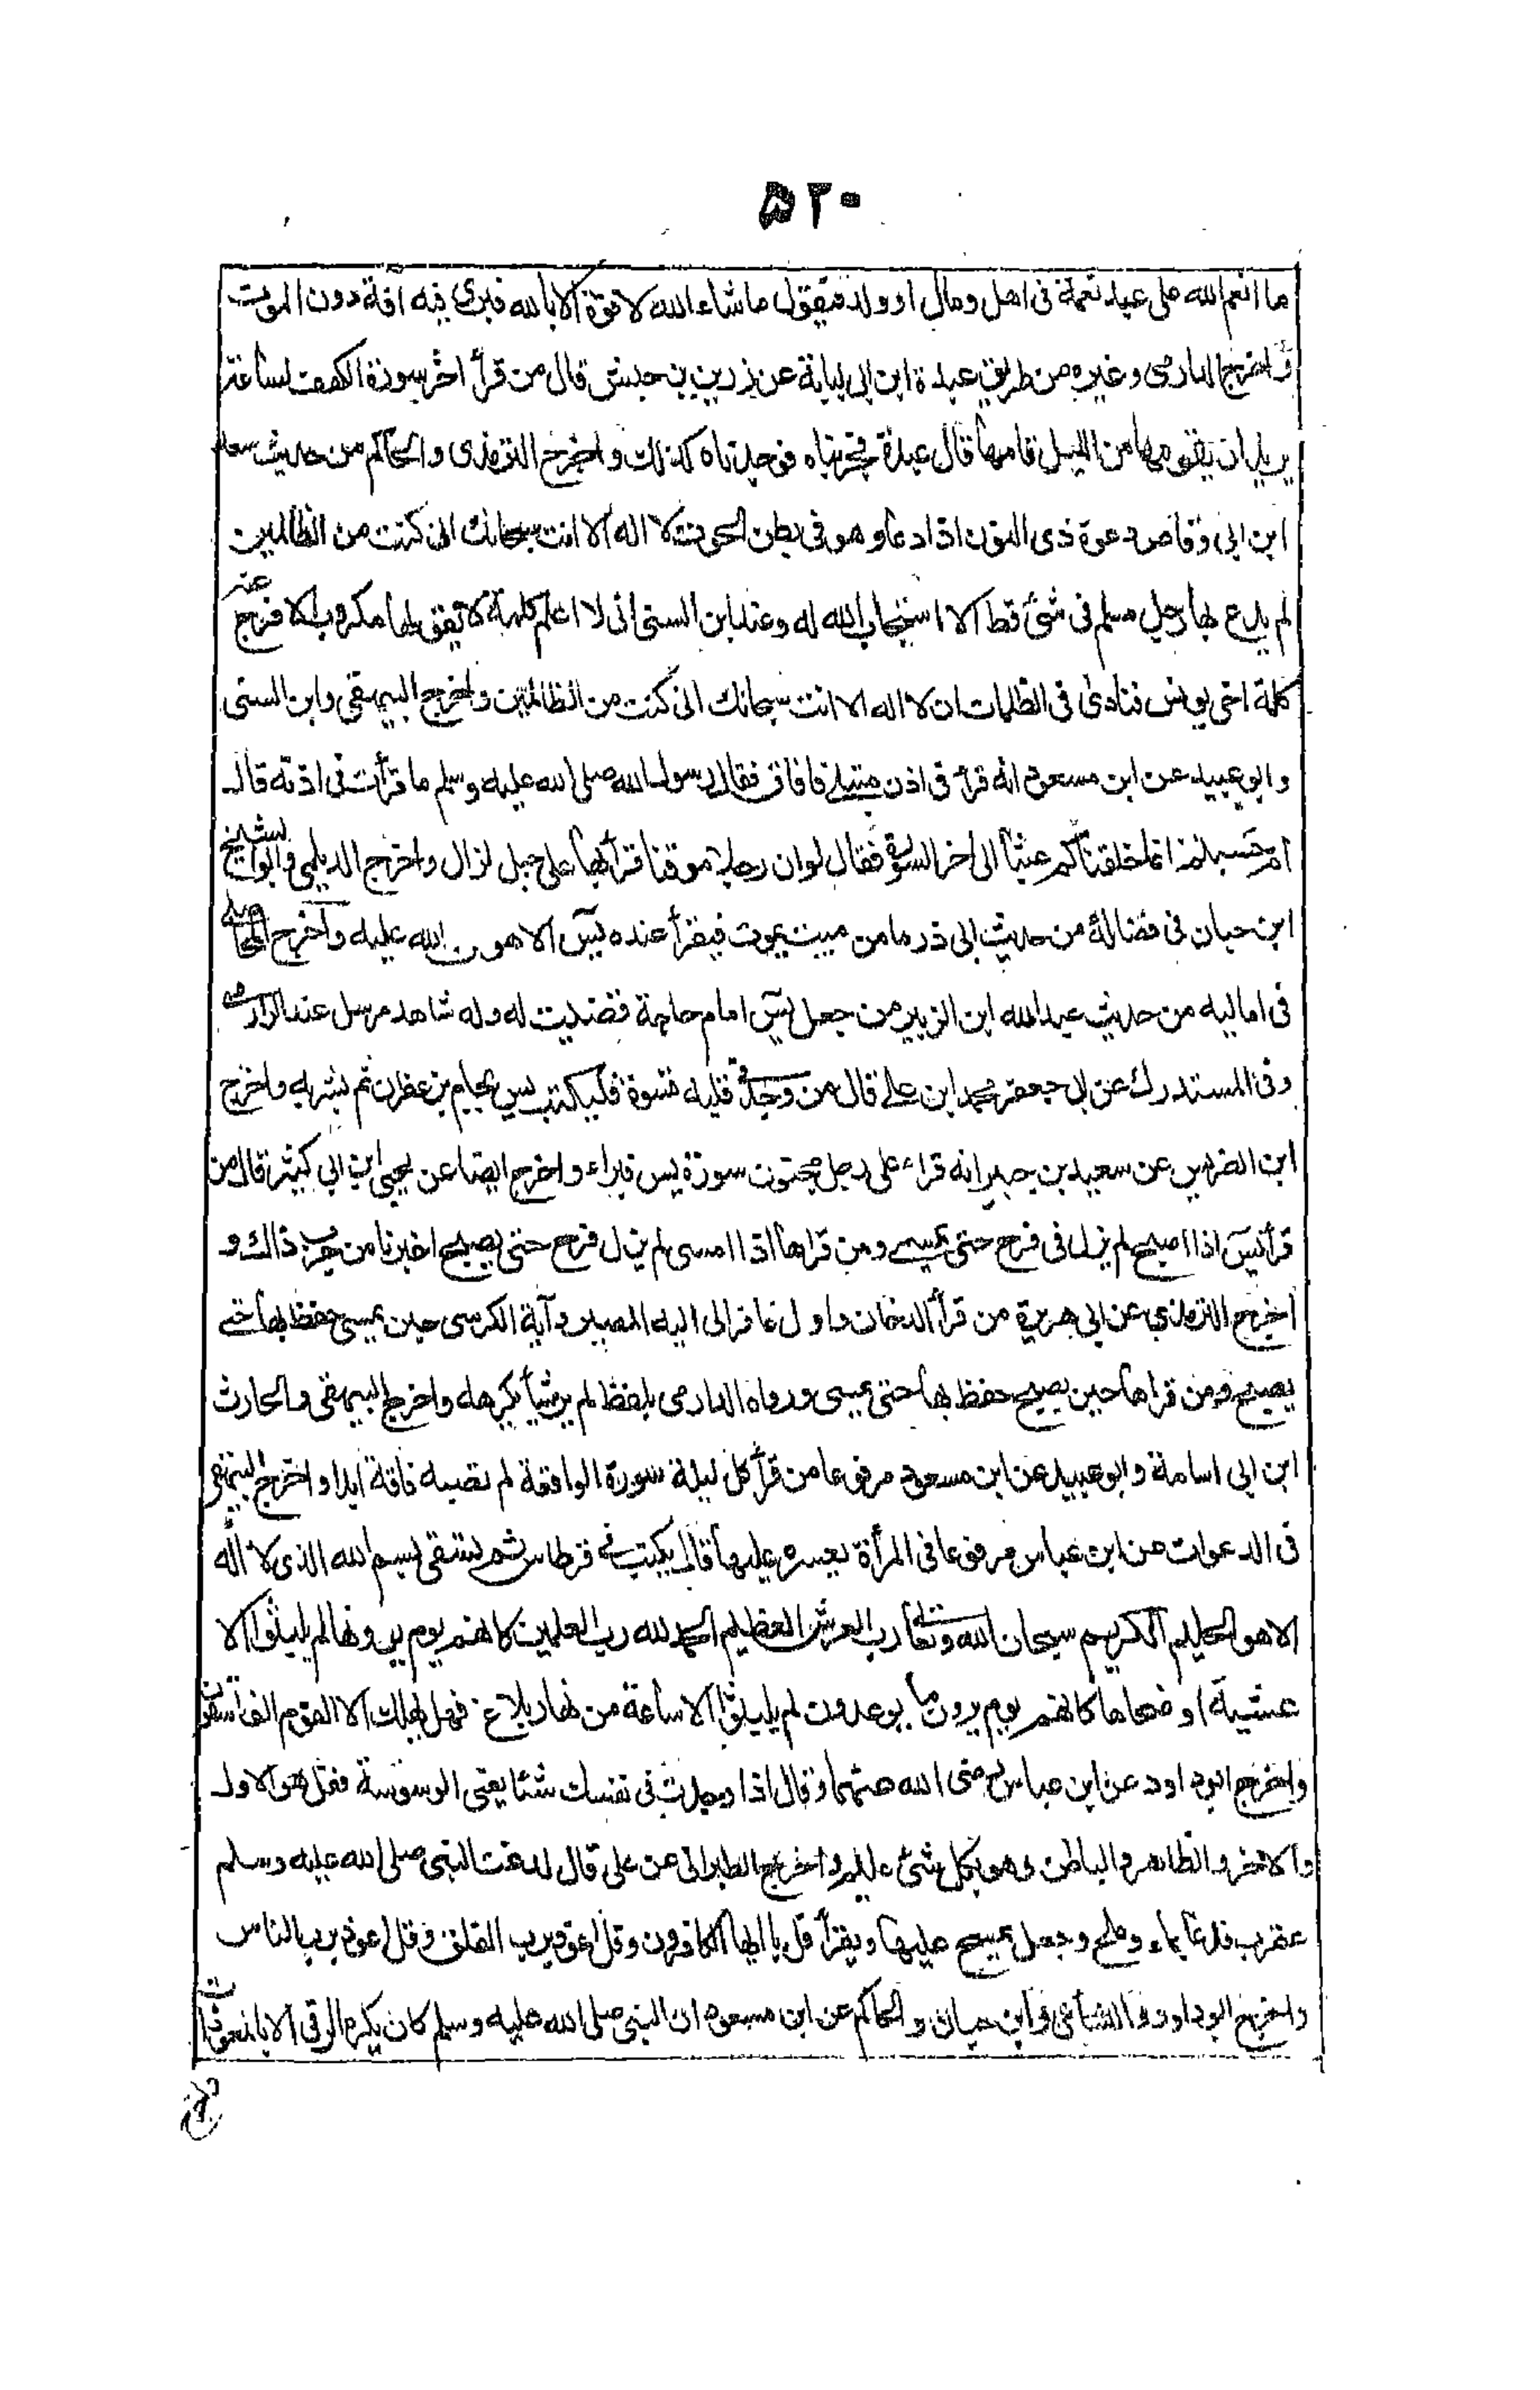 ۵۲۰
ما انعم الله على عبد نعمة فى اهل ومال او ولد فيقول ما شاء الله لا قوة الا بالله فيرى فيه افة دون الموت
واخرج الدارمى وغيره من طريق عبدة ابن ابى لبابة عن زرين بن حبيش قال من قرأ اخر سورة الكهف لساعة
يريد ان يقومها من الليل قامها قال عبدة فجربناه فوجدناه كذلك واخرج الترمذى والحاكم من حديث سعد
ابن ابى وقاص دعوة ذى النون اذ ادعا وهو فى بطن الحوت لا اله الا انت سبحانك انى كنت من الظالمين
لم يدع بها رجل مسلم فى شئ قط الا استجاب الله له وعند ابن السنى انى لا اعلم كلمة لا يقولها مكروب الا فرج عنه
كلمة اخى يونس فنادى فى الظلمات ان لا اله الا انت سبحانك انى كنت من الظالمين واخرج البيهقى وابن السنى
وابو عبيد عن ابن مسعود انه قرأ فى اذن مبتلى فافاق فقال رسول الله صلى الله عليه وسلم ما قرأت فى اذنه قال
افحسبتم انما خلقناكم عبثا الى اخر السورة فقال لو ان رجلا موقنا قرأ بها على جبل لزال واخرج الديلمى وابوالشيخ
ابن حبان فى فضائله من حديث ابى ذر ما من ميت يموت فيقرأ عنده يٓس الا هون الله عليه واخرج المحاملى
فى اماليه من حديث عبد الله ابن الزبير من جعل يٓس امام حاجة قضيت له وله شاهد مرسل عند الدارمى
وفى المستدرك عن ابى جعفر محمد ابن على قال من وجد فى قلبه قسوة فليكتب يس بجام بزعفران ثم يشربه واخرج
ابن الضريس عن سعيد بن جبير انه قراء على رجل مجنون سورة يس فبراء واخرج ايضا عن يحيى ابن ابى كثير قال من
قرأ يٓس اذا اصبح لم يزل فى فرح حتى يمسے ومن قراها اذا امسى لم يزل فرح حتى يصبح اخبرنا من جرب ذالك و
اخرج الترمذي عن ابى هريرة من قرأ الدخان واول غافر الى اليه المصير وآية الكرسى حين يمسى حفظ بها حتے
يصبح ومن قراها حين يصبح حفظ بها حتى يمسى ورواه الدارمى بلفظ لم ير شيأ يكرهه واخرج البيهقى والحارث
ابن ابى اسامة وابو عبيد عن ابن مسعود مرفوعا من قرأ كل ليلة سورة الواقعة لم تصبه فاقة ابدا واخرج البيهقى
فى الدعوات عن ابن عباس مرفوعا فى المرأة يعسر عليها قال يكتب فى قرطاس ثم تسقى بسم الله الذى لا اله
الا هو الحليم الكريم سبحان الله وتعالى رب العرش العظيم الحمد لله رب العلمين كانهم يوم يرونها لم يلبثوا الا
عشية او ضحاها كانهم يوم يرون ما يوعدون لم يلبثوا الا ساعة من نهار بلاغ فهل يهلك الا القوم الفاسقون
واخرج ابو داود عن ابن عباس رضى الله عنهما وقال اذا وجدت فى نفسك شئا يعنى الوسوسة فقل هو الاول
والاخر والظاهر والباطن وهو بكل شئ عليم واخرج الطبرانى عن على قال لدغت النبى صلى الله عليه وسلم
عقرب فدعا بماء وملح وجعل يمسح عليها ويقرأ قل يا ايها الكافرون وقل اعوذ برب الفلق وقل اعوذ برب الناس
واخرج ابو داود والنسائى وابن حبان والحاكم عن ابن مسعود ان النبى صلى الله عليه وسلم كان يكره الرقى الا بالمعوذات